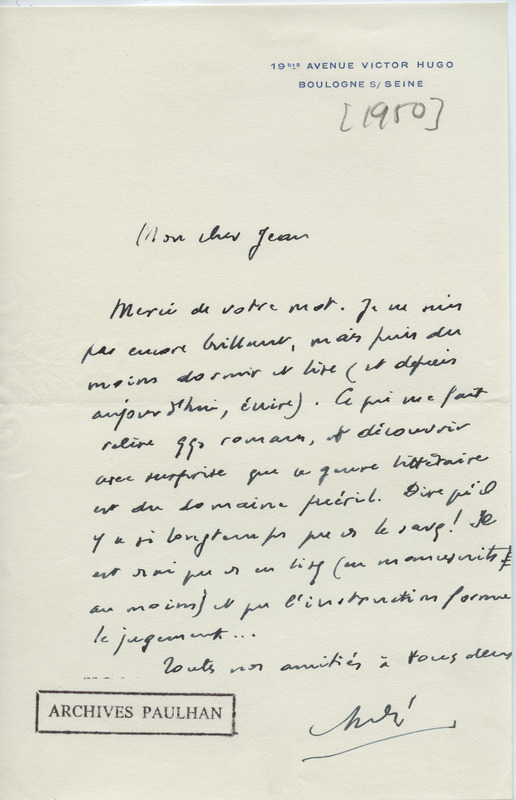 19BIS AVENUE VICTOR HUGO
BOULOGNE S/ SEINE
[1950]
Mon cher Jean
Merci de votre mot. Je ne suis
pas encore brillant, mais puis du
moins dormir et lire (et depuis
aujourd'hui, écrire). Ce qui me fait
relire qqs romans, et découvrir
avec surprise que ce genre littéraire
est du domaine puéril. Dire qu'il
y a si longtemps que vs le savez! Il
est vrai que vs en lisez (en manuscrits
au moins) et que l'instruction forme
le jugement...
Toutes nos amitiés à tous deux
André
ARCHIVES PAULHAN